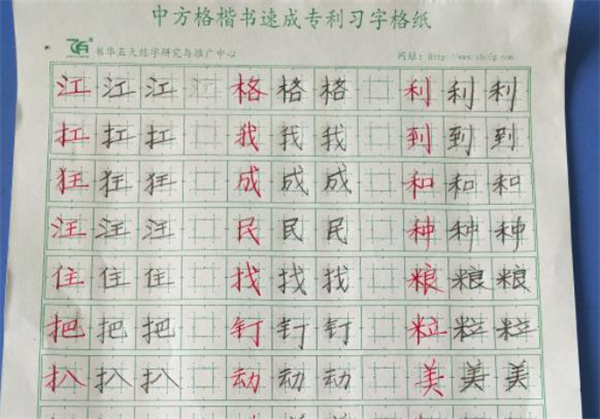 中方格楷书速成专利习字格纸
书华五天练字研究与推广中心 网站：http://www.shcfg.com
江江江江格格格利利利
扛扛扛我我我到到到
狂狂狂成成成和和和
汪汪汪民民民种种种
住住住找找找粮粮粮
把把把钉钉钉粒粒粒
扒扒扒动动动美美美